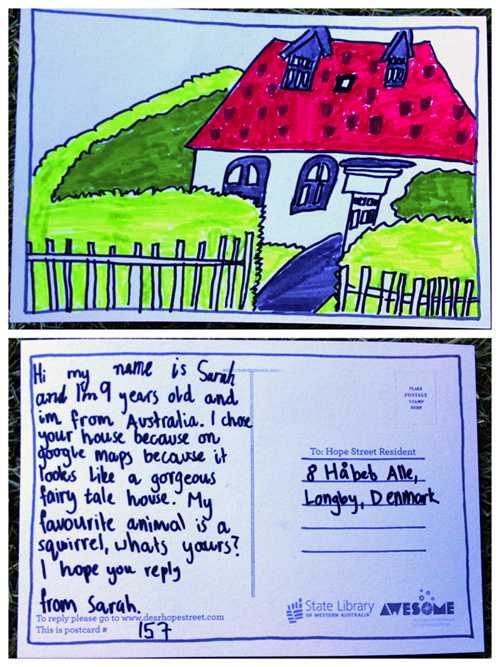 Hi my name is Sarah
and I'm 9 years old and
im from Australia. I chose
your house because on
google maps because it
looks like a gorgeous
fairy tale house. My
favourite animal is a
squirrel, whats yours?
I hope you reply
from Sarah.
To reply please go to www.dearhopestreet.com
This is postcard # 157
PLACE
POSTAGE
STAMP
HERE
To: Hope Street Resident
8 Håbets Alle,
Longby, Denmark
State Library
OF WESTERN AUSTRALIA
AWESOME